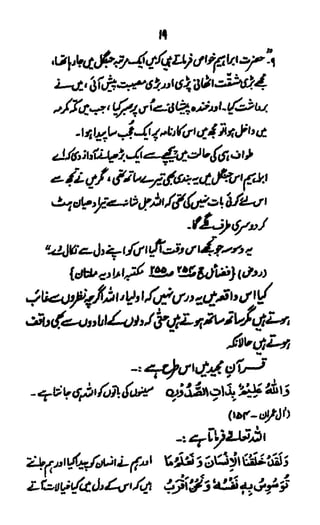 ۱۹
۹۔ حضرت ابراہیم خواص فرماتے ہیں کہ میں ایک مرتبہ جنگل میں جا رہا تھا،
مجھے بڑی مشقت اٹھانی پڑی اور بڑی مصیبت پیش آئی، میں نے
برداشت کیا۔ اور خندہ پیشانی سے اُس پر صبر کیا، جب میں مکہ مکرمہ
میں داخل ہوا تو مجھ میں اس کارنامہ پر ایک عُجب سا پیدا ہوا۔
طواف ہی کی حالت میں پیچھے سے ایک بڑھیا نے آواز دی کہ اے
ابراہیم اس جنگل میں یہ بندی بھی تیرے ساتھ تھی، مگر میں نے تجھ سے
اس لئے کوئی بات نہیں کی تھی کہ اللہ جل شانہ سے تیرا دھیان ہٹ
کر دوسری طرف لگے گا۔
یہ وسوسہ جو تجھے اس وقت آگیا اس کو اپنے دل سے نکال دے"
(روض) {فضائل حج ۲۵۴، ۲۵۵ مکتبہ امدادیہ ملتان}
کیا اس واقعہ میں یہ درس نہیں کہ اولیاء اللہ اگرچہ نظروں سے غائب
ہوتے ہیں مگر ساتھ ساتھ ہوتے ہیں حتیٰ کہ دلوں کے ارادوں سے بھی واقف
ہوتے ہیں حالانکہ
قرآن مجید میں اس طرح ہے :۔
وَاللّٰهُ عَلِيْمٌ بِذَاتِ الصُّدُوْرِ ۝ سینوں کی باتوں کو اللہ ہی جانتا ہے ۔
(آل عمران - ۱۵۴)
اللہ تعالٰے فرماتا ہے :۔
وَلَقَدْ خَلَقْنَا الْاِنْسَانَ وَنَعْلَمُ مَا اور ہم نے انسان کو پیدا کیا اور ہم جانتے
تُوَسْوِسُ بِهٖ نَفْسُهٗ ۚ وَنَحْنُ اَقْرَبُ ہیں کہ اس کے دل میں کیا خیالات آتے